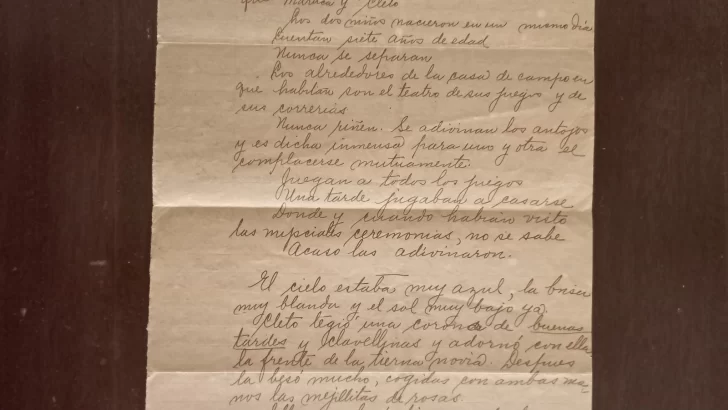 que Maraca y Cleto
Los dos niños nacieron en un mismo día
Cuentan siete años de edad
Nunca se separan
Los alrededores de la casa de campo en
que habitan son el teatro de sus juegos y de
sus correrías
Nunca riñen. Se adivinan los antojos
y es dicha inmensa para uno y otra el
complacerse mutuamente.
Juegan a todos los juegos
Una tarde jugaban a casarse
Donde y cuando habían visto
las nupciales ceremonias, no se sabe
Acaso las adivinaron.
El cielo estaba muy azul, la brisa
muy blanda y el sol muy bajo ya.
Cleto tegió una corona de buenas
tardes y clavellinas y adornó con ella
la frente de la tierna novia. Despues
la besó mucho, cogidas con ambas ma-
nos las mejillitas de rosas